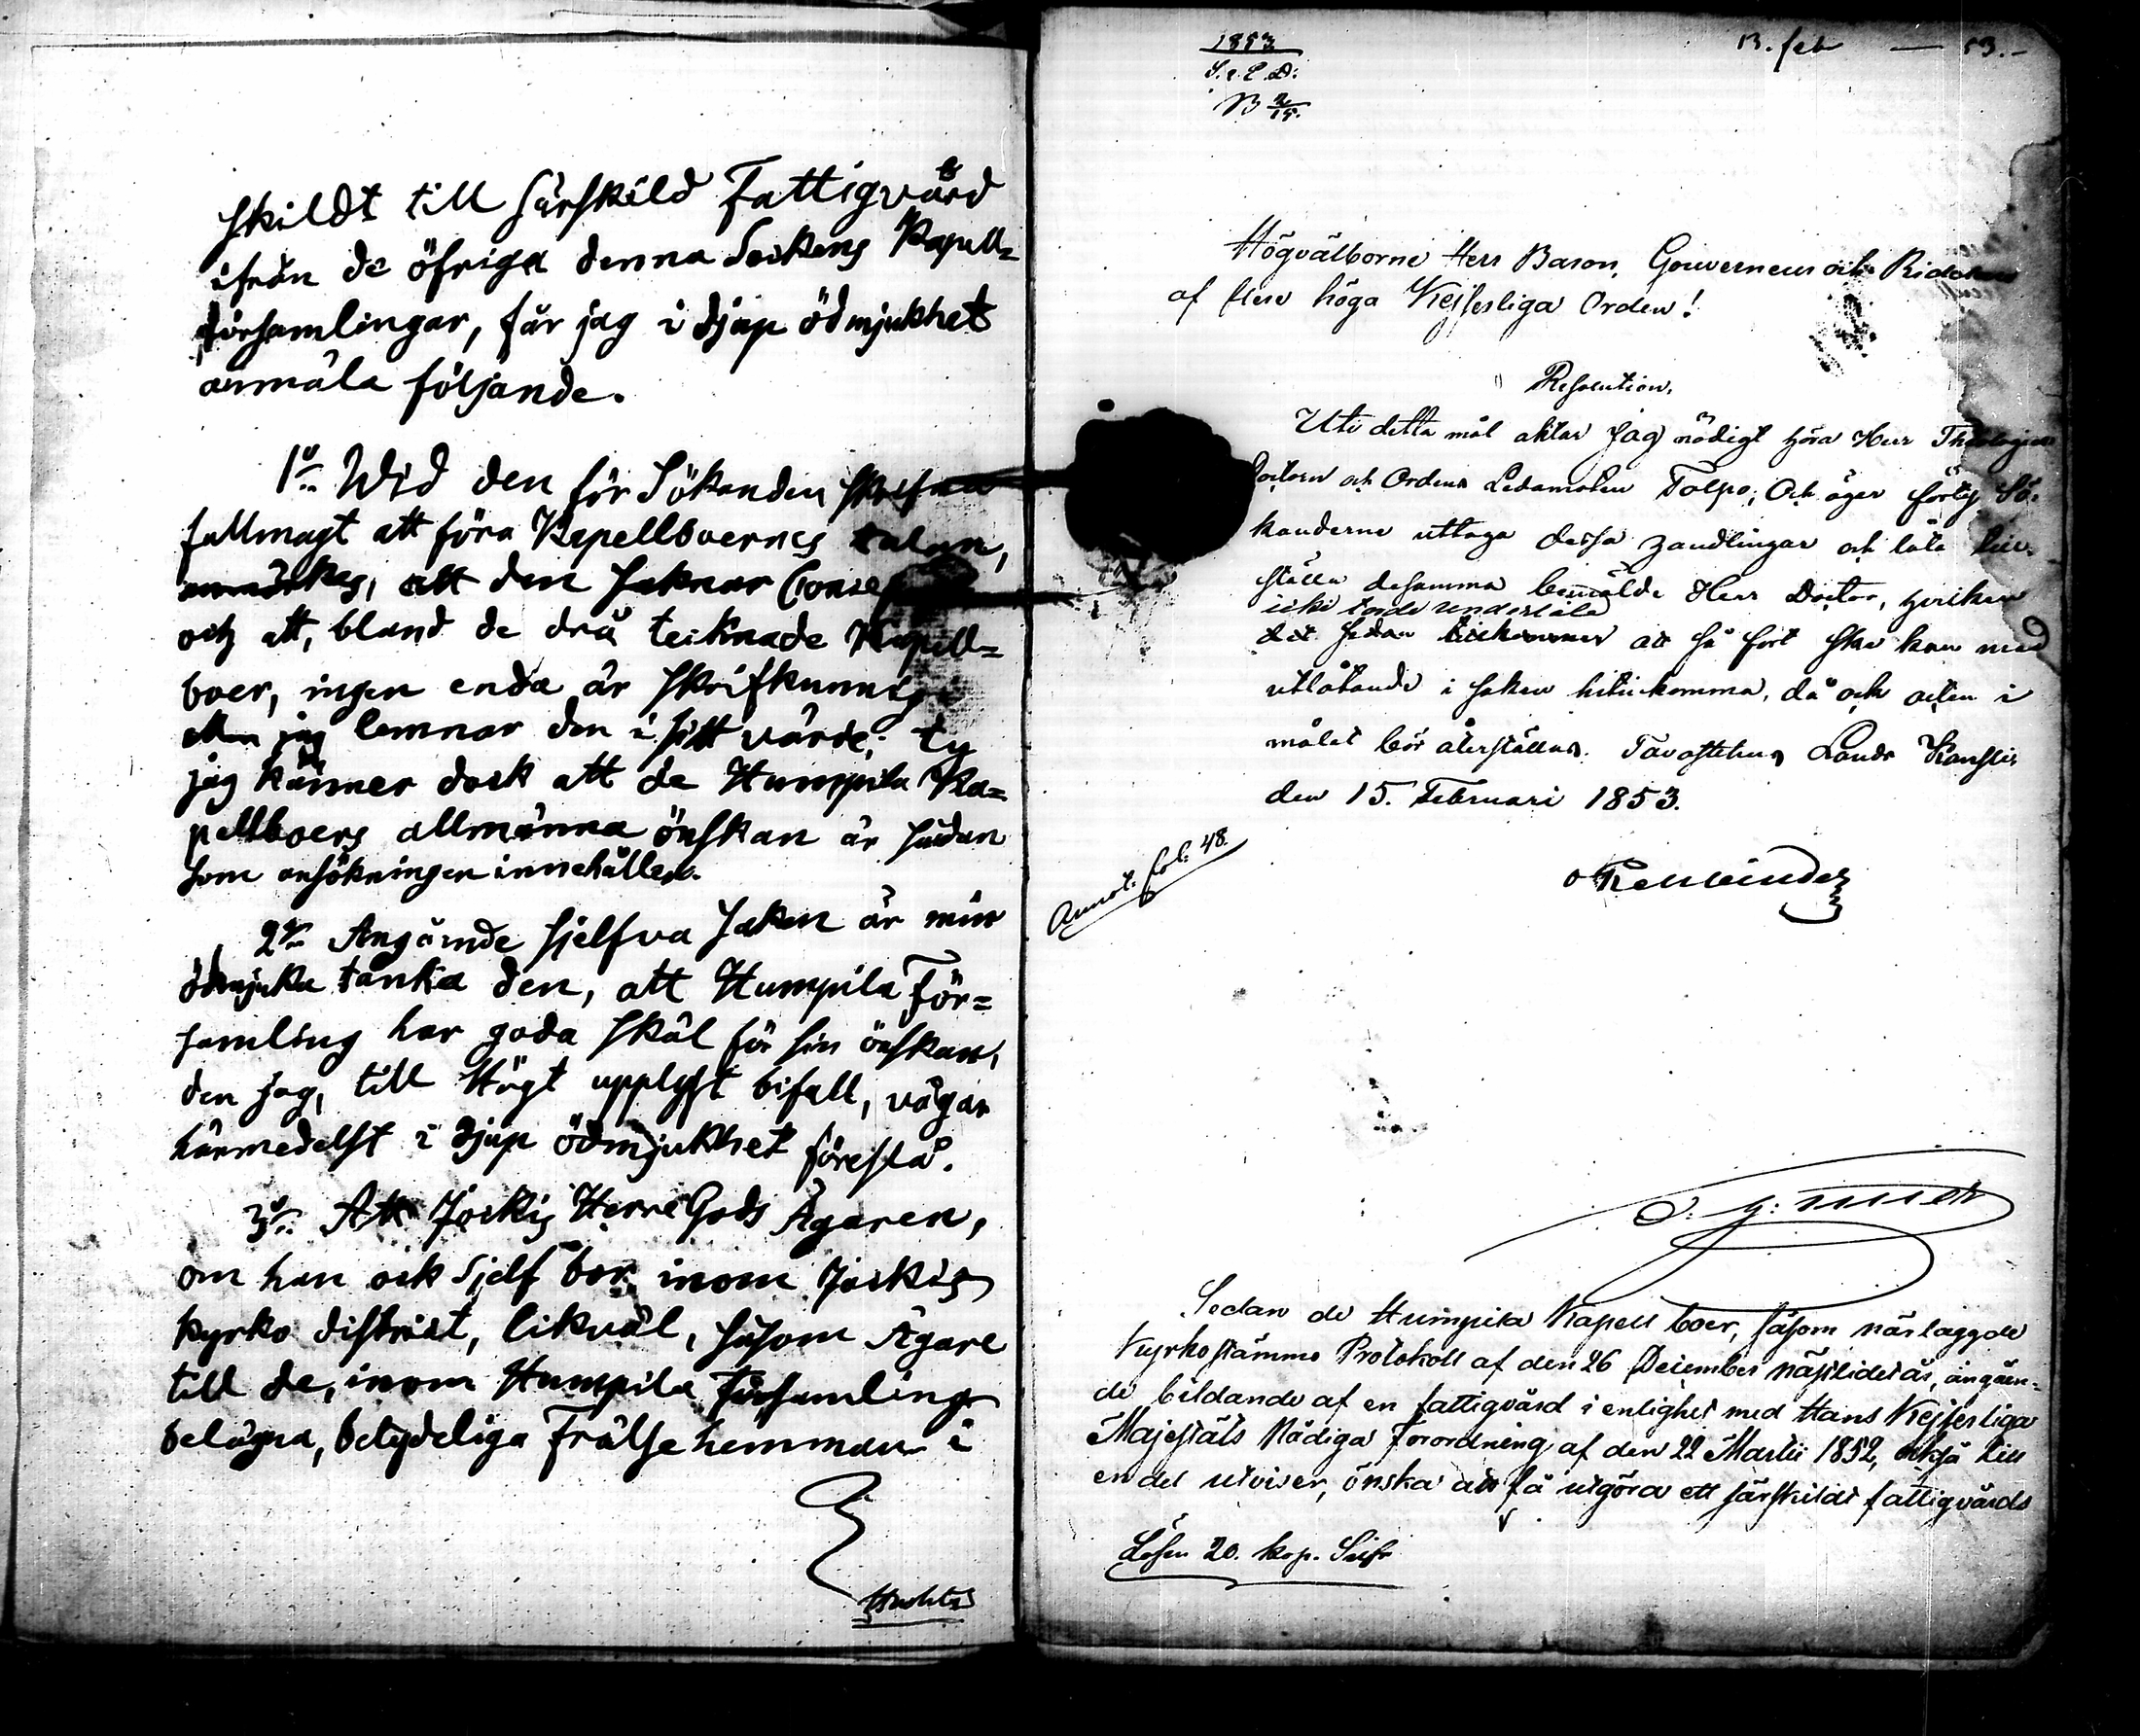 skildt till särskild Fattigvård
ifrån de öfriga denna Sockens Kapell=
församlingar, får jag i djup ödmjukhet
anmäla följande.
1:o Wid den för Sökanden
fullmagt att föra Kapellboernes talan,
anmärkes, att den saknar
och att, bland de dra tecknade Kapell=
boer, ingen enda är skrifkunnig;
Men jag lemnar den i sitt värde; ty
jag känner dock att de Humpila Ka=
pellboers allmänna önskan är sådan
som ansökningen innehåller.
2:o Angående sjelfva saken är min
ödmjuka tanka den, att Humpila För=
samling har goda skäl för sin önskan,
den jag, till Högt upplyst bifall, vågar
härmedelst i djup ödmjukhet föreslå.
3:o Att Jockis HerreGods Ägaren,
om han ock sjelf bor inom Jockis
kyrko district, likväl, såsom Ägare
till de, inom Humpila Församling
belägna, betydeliga Frälse hemman i
1853
13. feb — 53.-
Högvälborne Herr Baron, Gouverneur och Riddare
af flere höga Kejserliga Orden!
Resolution.
Uti detta mål aktar jag nödigt höra Herr Theologie
Doctorn och Ordens Ledamoten Tolpo; Och äger förty Sö-
kanderne uttaga dessa handlingar och låta till-
ställa desamma bemälde Herr Doctor, hvilken
icke torde underlåta
det sedan att så fort ske kan med
utlåtande i saken hitinkomma, då och acten i
målet bör återställas. Tavastehus Lands Kansli
den 15. Februari 1853.
Annot. fol. 48.
Rehbinder
Sedan de Humpila Kapell boer, såsom närlaggde
Kyrkostämmo Protokoll af den 26 December nästlidet år, angåen-
de bildande af en fattigvård i enlighet med Hans Kejserliga
Majestäts Nådiga Förordning af den 22 Martii 1852, också till
en del utviser, önska att få utgöra ett särskildt fattigvårds
Lösen 20. kop. Silfr